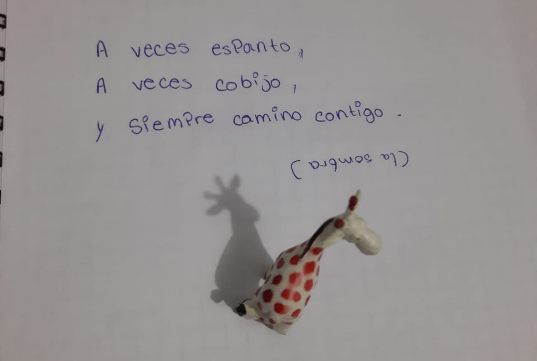 A veces espanto,
A veces cobijo,
y siempre camino contigo.
(la sombra)